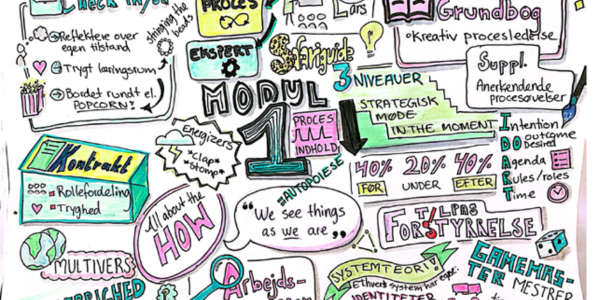 Check in/out
Reflektere over
egen tilstand
Trygt læringsrum
Bordet rundt el.
POPCORN!
stringing the
beads
PROCES
EKSPERT
Safariguide
Lars
Grundbog
*kreativ procesledelse
Suppl.
Anerkendende
procesøvelser
MODUL
1
PROCES
INDHOLD
3 NIVEAUER
STRATEGISK
MØDE
IN THE MOMENT
Intention
Desired outcome
Agenda
Rules/roles
Time
Energizers
*Clap*
*Stomp*
Kontrakt
Rollefordeling
Tryghed
40% 20% 40%
FØR UNDER EFTER
#AUTOPOIESE
All about the
HOW
"We see things
as we are"
TILPAS
FORSTYRRELSE
MULTIVERS
Arbejds-
SYSTEMTEORI
Ethvert system har egne
IDENTITETER
GAMEMAS-
TER MESTRE